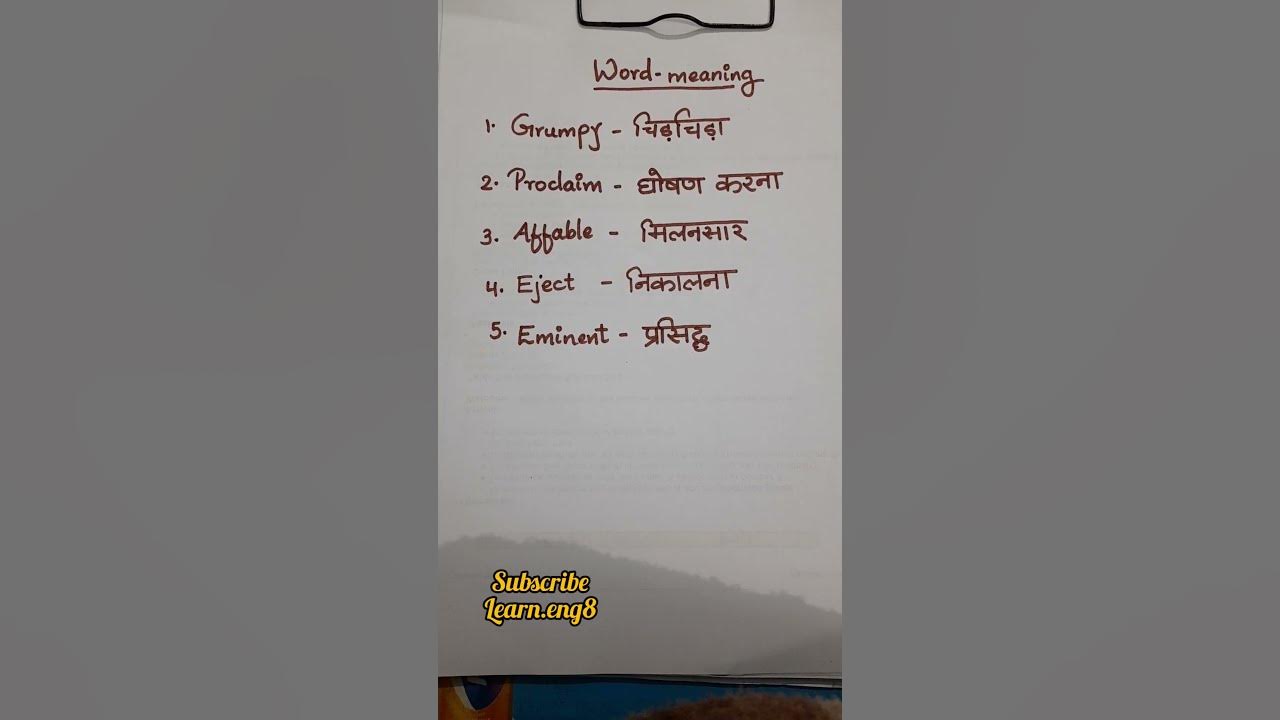 Word-meaning
1. Grumpy - चिड़चिड़ा
2. Proclaim - घोषण करना
3. Affable - मिलनसार
4. Eject - निकालना
5. Eminent - प्रसिद्ध
Subscribe
Learn.eng8